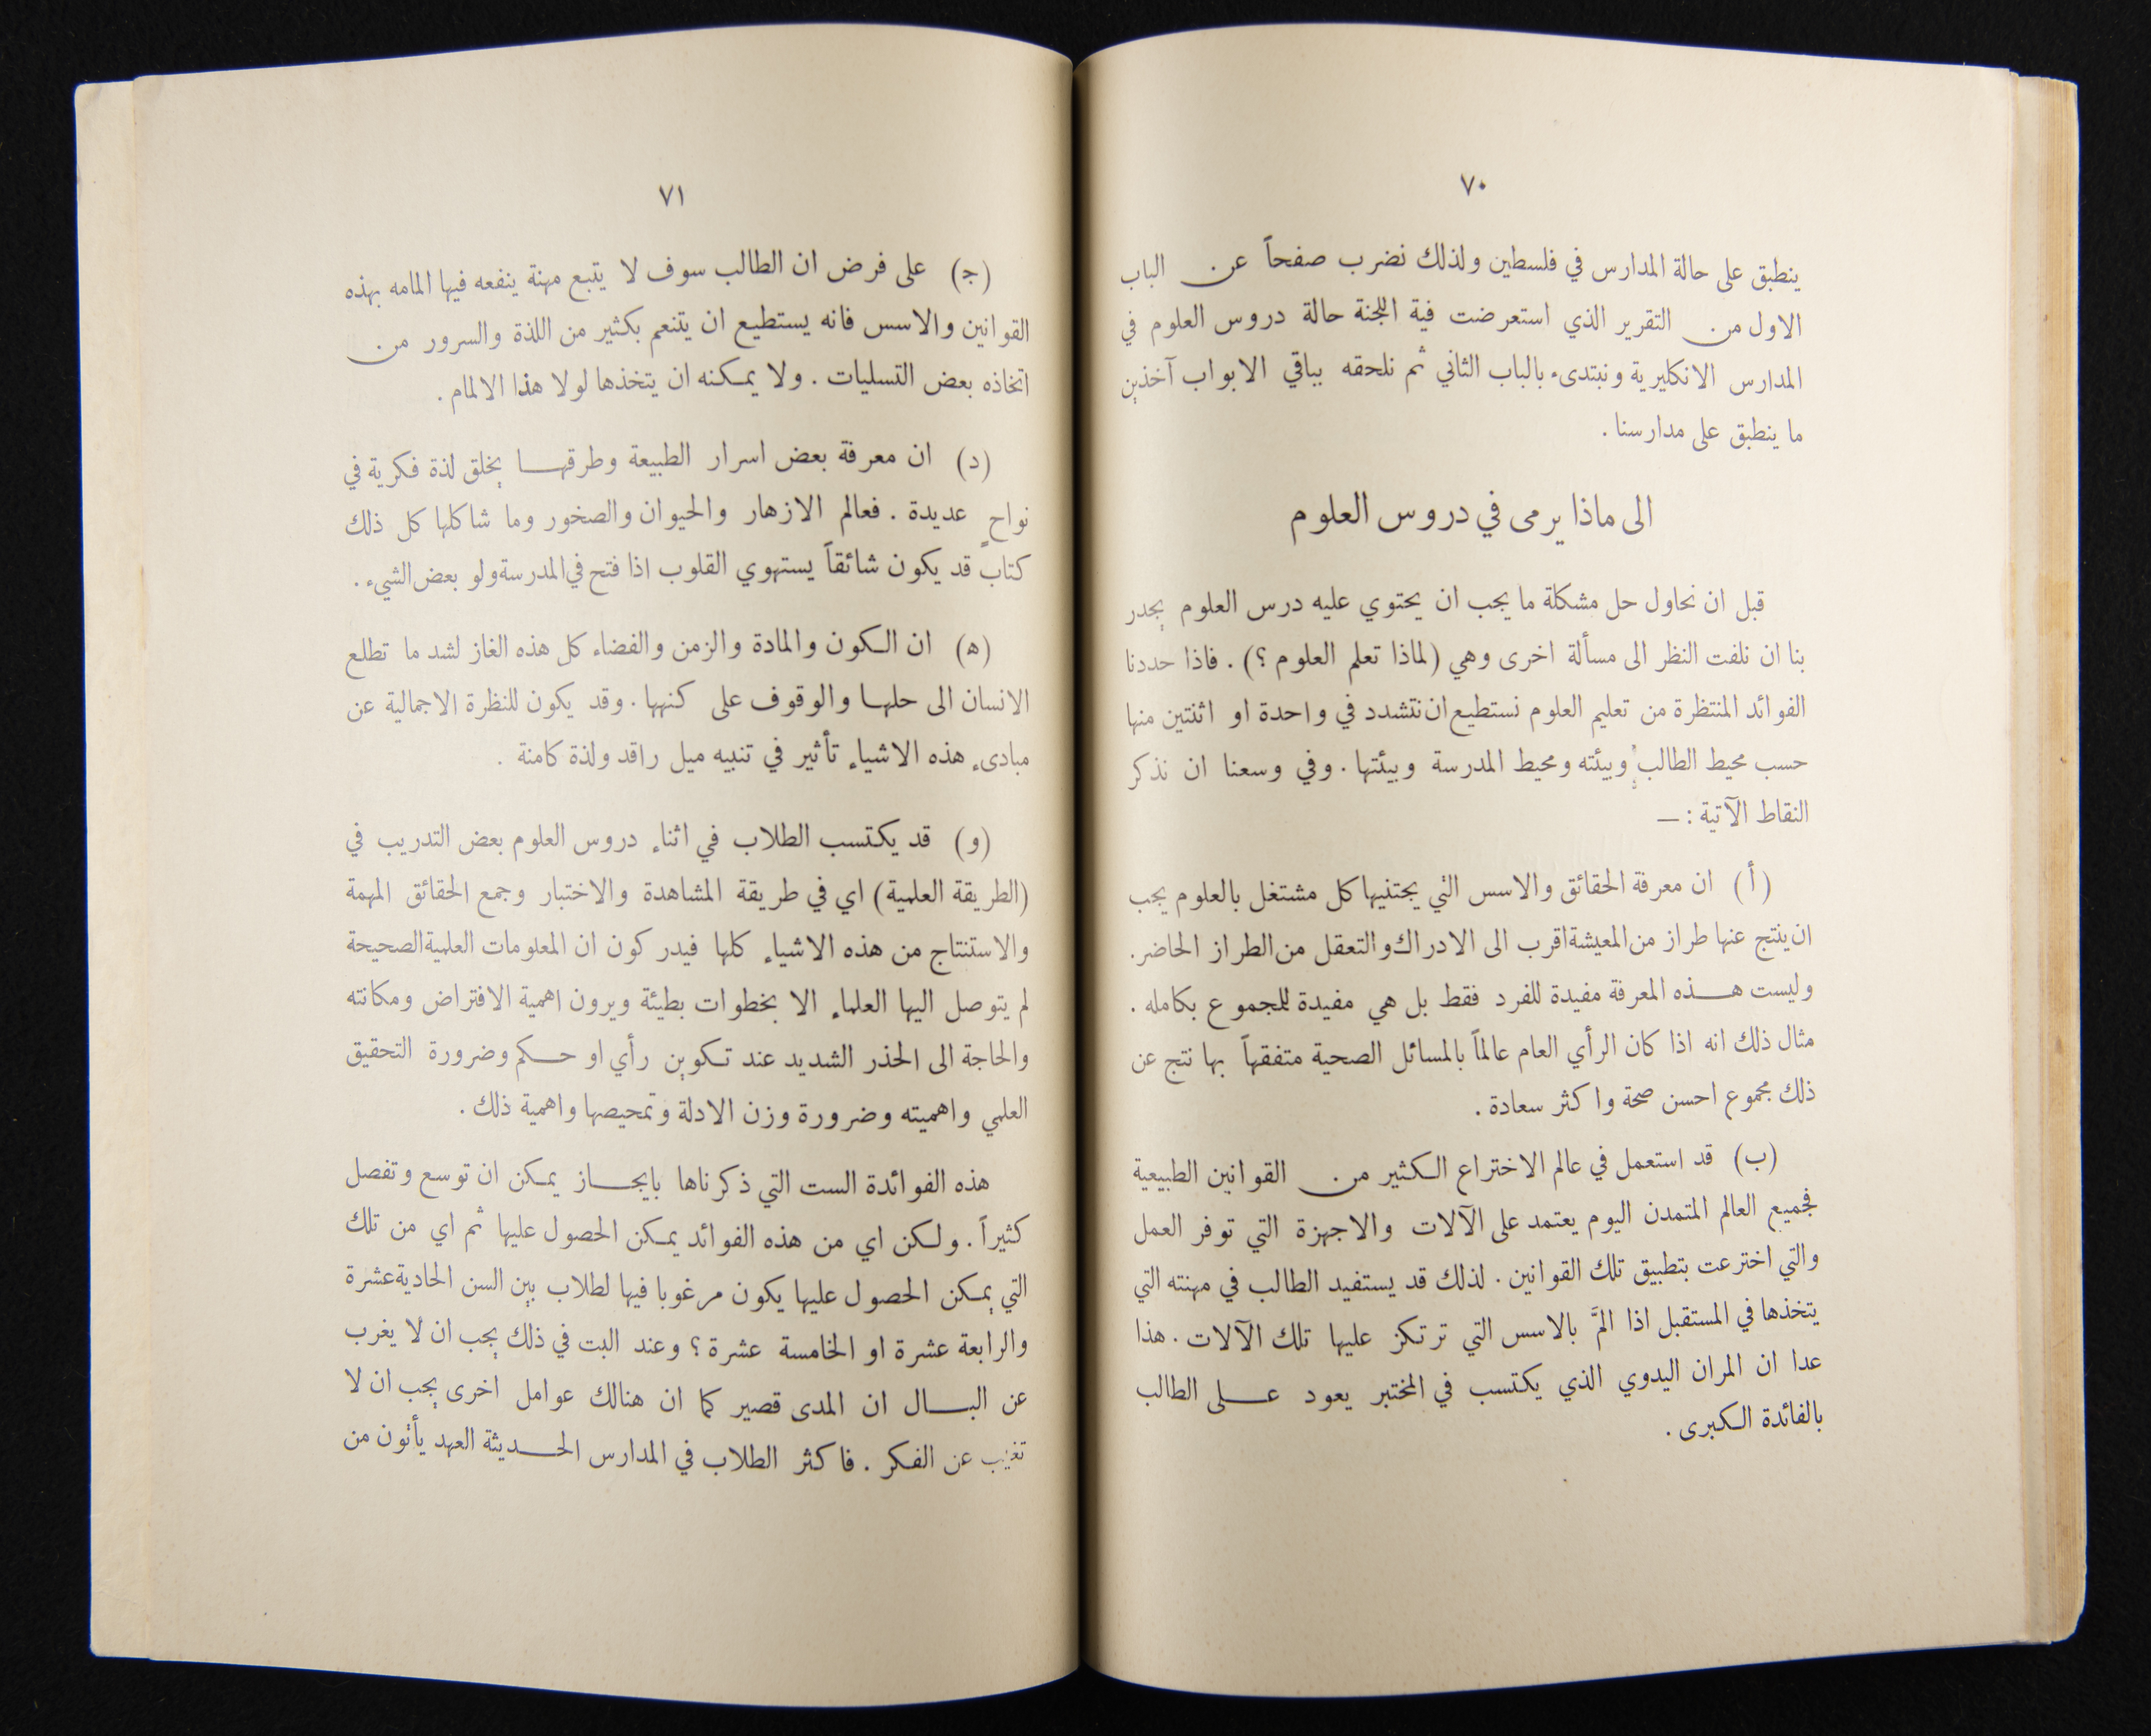 ٧٠
ينطبق على حالة المدارس في فلسطين ولذلك نضرب صفحاً عن الباب
الاول من التقرير الذي استعرضت فية اللجنة حالة دروس العلوم في
المدارس الانكليرية ونبتدىء بالباب الثاني ثم نلحقه بباقي الابواب آخذين
ما ينطبق على مدارسنا .
الى ماذا يرمى في دروس العلوم
قبل ان نحاول حل مشكلة ما يجب ان يحتوي عليه درس العلوم يجدر
بنا ان نلفت النظر الى مسألة اخرى وهي (لماذا تعلم العلوم ؟) . فاذا حددنا
الفوائد المنتظرة من تعليم العلوم نستطيع ان نتشدد في واحدة او اثنتين منها
حسب محيط الطالب وبيئته ومحيط المدرسة وبيئتها . وفي وسعنا ان نذكر
النقاط الآتية : —
(أ) ان معرفة الحقائق والاسس التي يجتنيها كل مشتغل بالعلوم يجب
ان ينتج عنها طراز من المعيشة اقرب الى الادراك والتعقل من الطراز الحاضر.
وليست هذه المعرفة مفيدة للفرد فقط بل هي مفيدة للمجموع بكامله .
مثال ذلك انه اذا كان الرأي العام عالماً بالمسائل الصحية متفقهاً بها نتج عن
ذلك مجموع احسن صحة واكثر سعادة .
(ب) قد استعمل في عالم الاختراع الكثير من القوانين الطبيعية
فجميع العالم المتمدن اليوم يعتمد على الآلات والاجهزة التي توفر العمل
والتي اخترعت بتطبيق تلك القوانين . لذلك قد يستفيد الطالب في مهنته التي
يتخذها في المستقبل اذا المَّ بالاسس التي ترتكز عليها تلك الآلات . هذا
عدا ان المران اليدوي الذي يكتسب في المختبر يعود على الطالب
بالفائدة الكبرى .
٧١
(ج) على فرض ان الطالب سوف لا يتبع مهنة ينفعه فيها المامه بهذه
القوانين والاسس فانه يستطيع ان يتنعم بكثير من اللذة والسرور من
اتخاذه بعض التسليات . ولا يمكنه ان يتخذها لولا هذا الالمام .
(د) ان معرفة بعض اسرار الطبيعة وطرقها يخلق لذة فكرية في
نواحٍ عديدة . فعالم الازهار والحيوان والصخور وما شاكلها كل ذلك
كتاب قد يكون شائقاً يستهوي القلوب اذا فتح في المدرسة ولو بعض الشيء .
(ه) ان الكون والمادة والزمن والفضاء كل هذه الغاز لشد ما تطلع
الانسان الى حلها والوقوف على كنهها . وقد يكون للنظرة الاجمالية عن
مبادىء هذه الاشياء تأثير في تنبيه ميل راقد ولذة كامنة .
(و) قد يكتسب الطلاب في اثناء دروس العلوم بعض التدريب في
(الطريقة العلمية) اي في طريقة المشاهدة والاختبار وجمع الحقائق المهمة
والاستنتاج من هذه الاشياء كلها فيدركون ان المعلومات العلمية الصحيحة
لم يتوصل اليها العلماء الا بخطوات بطيئة ويرون اهمية الافتراض ومكانته
والحاجة الى الحذر الشديد عند تكوين رأي او حكم وضرورة التحقيق
العلمي واهميته وضرورة وزن الادلة وتمحيصها واهمية ذلك .
هذه الفوائدة الست التي ذكرناها بايجاز يمكن ان توسع وتفصل
كثيراً . ولكن اي من هذه الفوائد يمكن الحصول عليها ثم اي من تلك
التي يمكن الحصول عليها يكون مرغوبا فيها لطلاب بين السن الحادية عشرة
والرابعة عشرة او الخامسة عشرة ؟ وعند البت في ذلك يجب ان لا يغرب
عن البال ان المدى قصير كما ان هنالك عوامل اخرى يجب ان لا
تغيب عن الفكر . فاكثر الطلاب في المدارس الحديثة العهد يأتون من